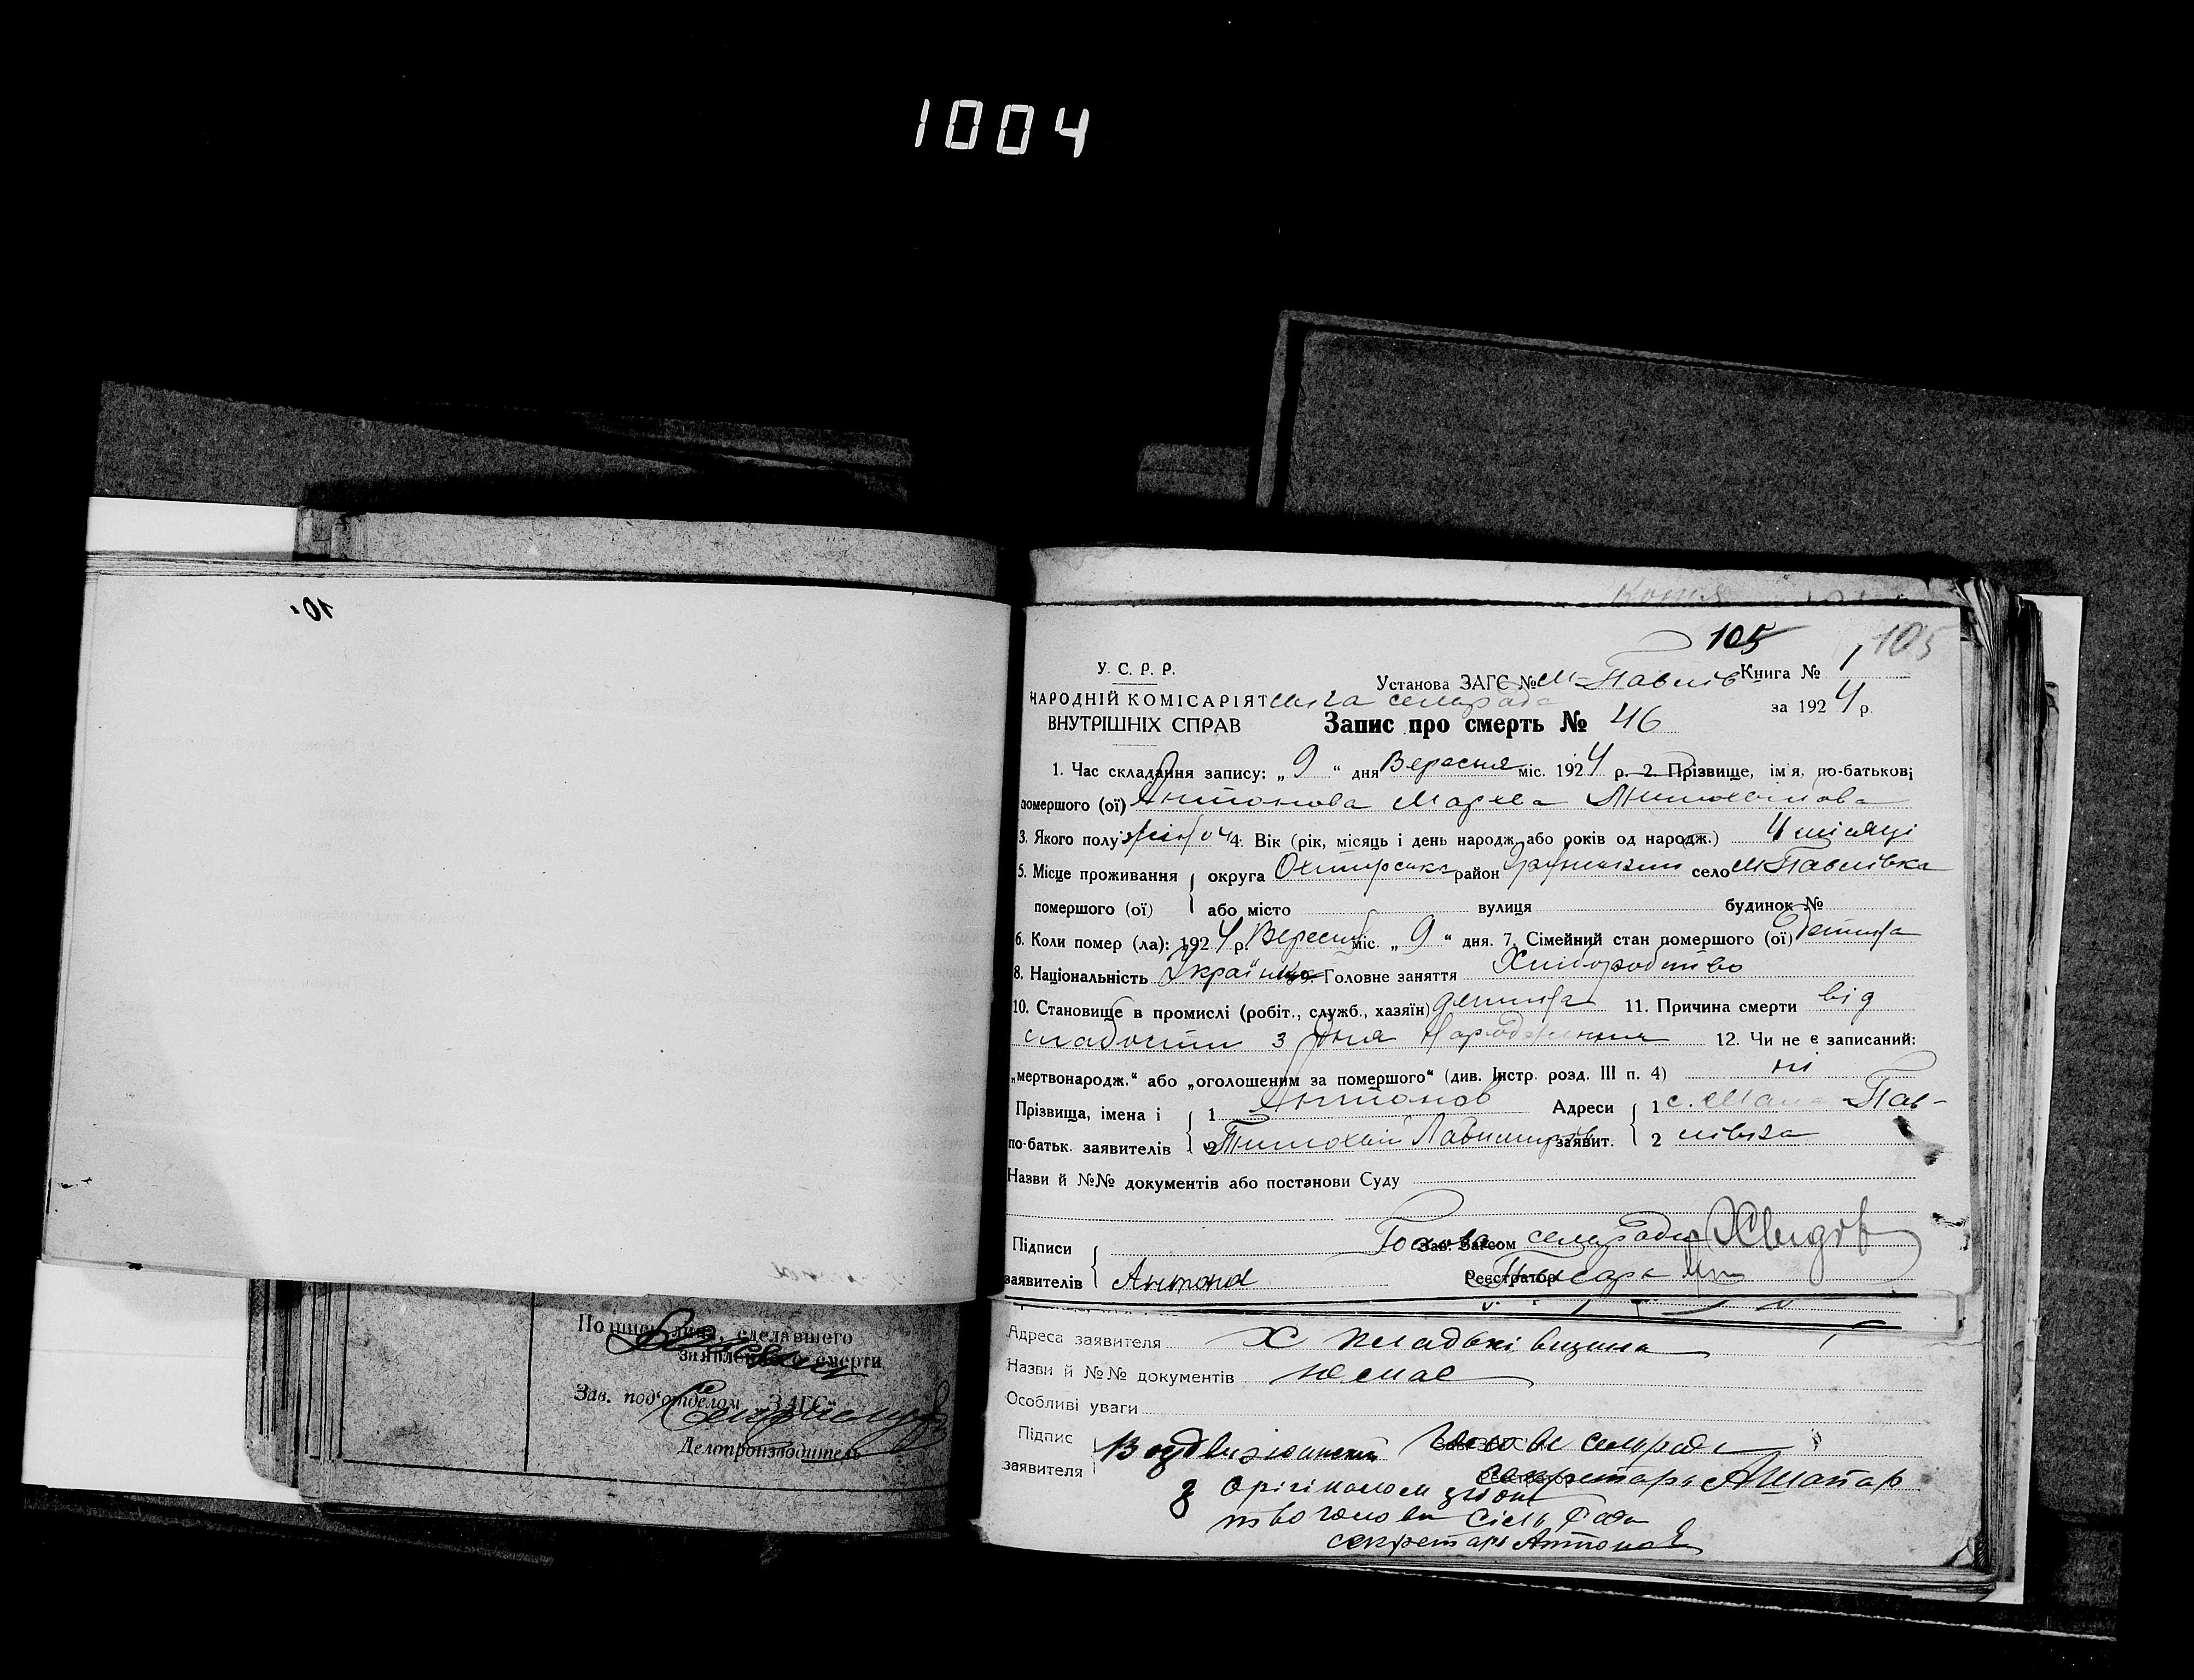 1004
105
105
У. С. Р. Р.
Установа ЗАГС № М-Павлів Книга № 1
НАРОДНІЙ КОМІСАРІЯТ ська сельрада за 1924 р.
ВНУТРІШНІХ СПРАВ Запис про смерть № 46
1. Час складання запису: „ 9 “ дня Вересня міс. 1924 р. 2. Прізвище, ім'я, по-батькові
помершого (ої) Антонова Мархва Тимохвіїова
3. Якого полу жіно 4. Вік (рік, місяць і день народж. або років од народж.) 4 місяці
5. Місце проживання округа Охтирська район село М Павлівка
помершого (ої) або місто вулиця будинок №
6. Коли помер (ла): 1924 р. Вересня міс. „ 9 “ дня. 7. Сімейний стан помершого (ої) Детина
8. Національність Українка 9. Головне заняття Хліборобство
10. Становище в промислі (робіт., служб., хазяїн) детина 11. Причина смерти від
слабости з дня народження 12. Чи не є записаний:
„мертвонародж.“ або „оголошеним за помершого“ (див. Інстр. розд. III п. 4) ні
Прізвища, імена і 1 Антонов Адреси 1 с. Мало-Пав-
по-батьк. заявителів 2 Тимохвій заявит. 2 лівка
Назви й №№ документів або постанови Суду
Підписи Голова Зав. Загсом сельради
заявителів Антонов Реєстратор Писарь
Адреса заявителя Х
Назви й №№ документів немае
Особливі уваги
Підпис Воздвиженский Зав. ЗАГС'ом Голова сельради
заявителя Реєстратор секретарь
З орігіналом
голова Сіль Ради
секретарь Антонов
10
Подпись лица, сделавшего
заявление о смерти
Зав. под'отделом „ЗАГС“
Делопроизводитель